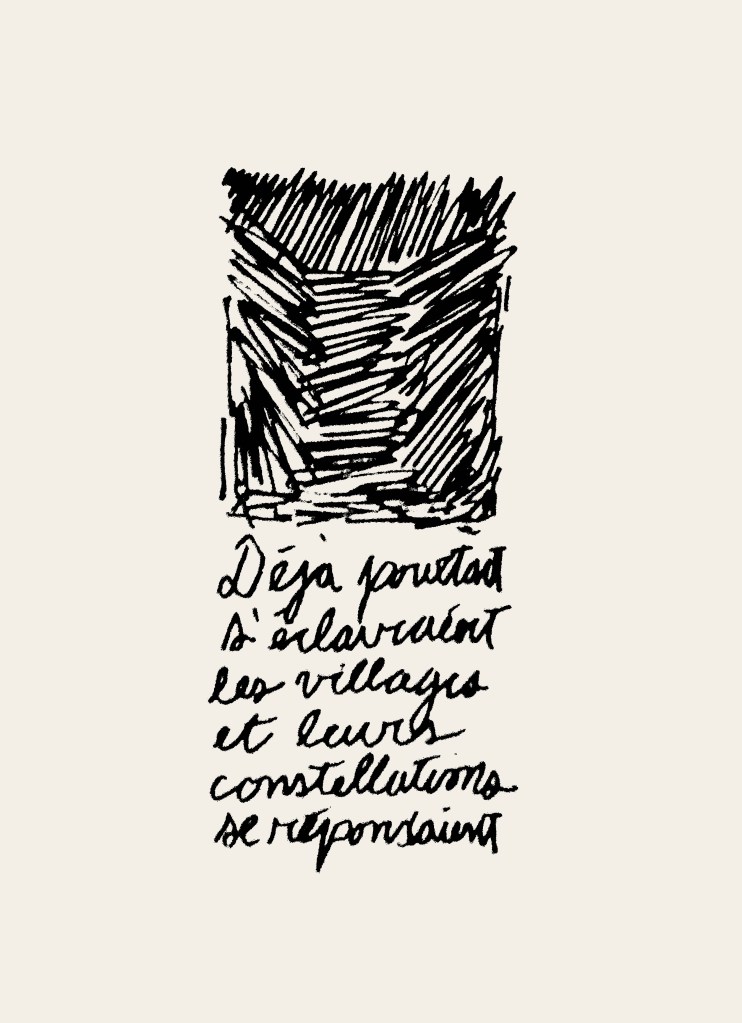 Déjà pourtant
s'éclairaient
les villages
et leurs
constellations
se répondaient